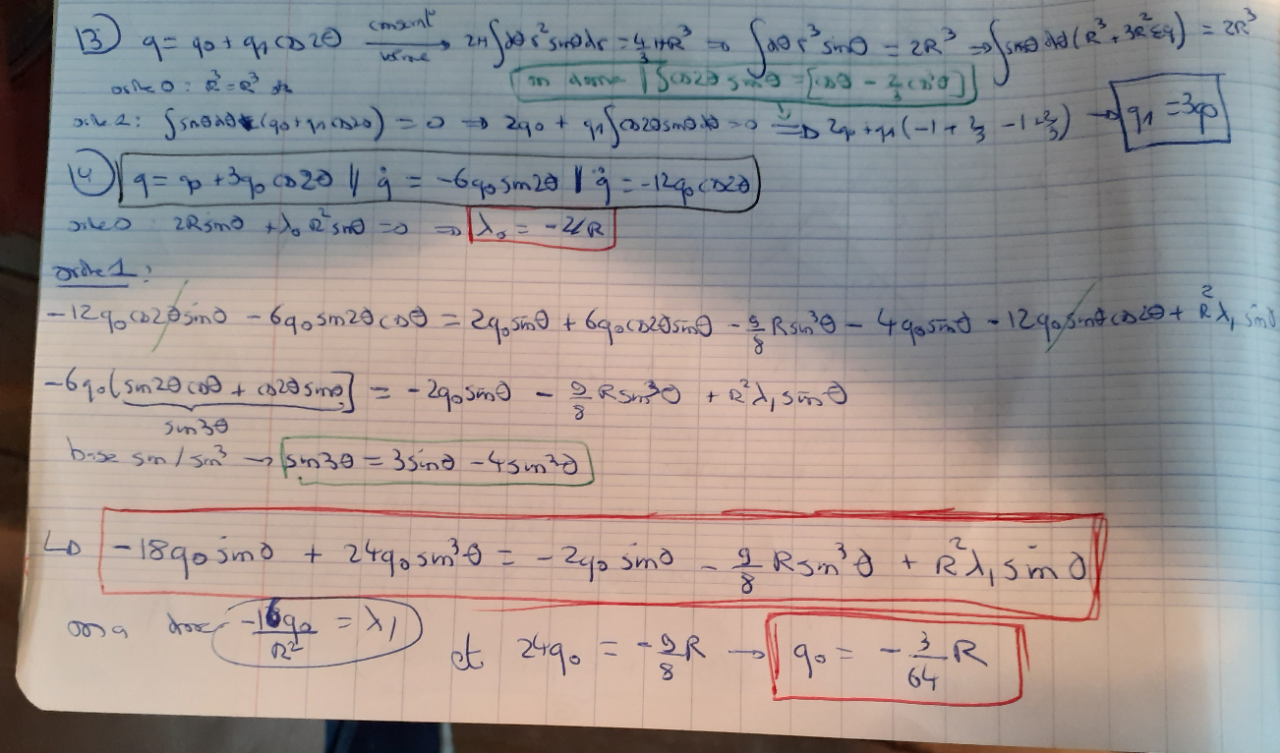 13) q = q0 + q1 cos2θ constant volume → 2π∫dθ r² sinθ dr = 4/3 πR³ ⇒ ∫dθ r³ sinθ = 2R³ ⇒ ∫sinθ dθ (R³ + 3R²εq) = 2R³
ordre 0 : R³ = R³ ok
on donne | ∫cos2θ sinθ = [cosθ - 2/3 cos³θ]
ordre 1 : ∫sinθ dθ (q0 + q1 cos2θ) = 0 ⇒ 2q0 + q1∫cos2θ sinθ dθ = 0 ⇒ 2q0 + q1(-1 + 2/3 - 1 + 2/3) → q1 = 3q0
14) q = q0 + 3q0 cos2θ // q̇ = -6q0 sin2θ // q̈ = -12q0 cos2θ
ordre 0 2R sinθ + λ0 R² sinθ = 0 ⇒ λ0 = -2/R
ordre 1 :
-12q0 cos2θ sinθ - 6q0 sin2θ cosθ = 2q0 sinθ + 6q0 cos2θ sinθ - 9/8 R sin³θ - 4q0 sinθ - 12q0 sinθ cos2θ + R² λ1 sinθ
-6q0 [sin2θ cosθ + cos2θ sinθ] = -2q0 sinθ - 9/8 R sin³θ + R² λ1 sinθ
sin3θ
base sin / sin³ → sin3θ = 3sinθ - 4sin³θ
↳ -18q0 sinθ + 24q0 sin³θ = -2q0 sinθ - 9/8 R sin³θ + R² λ1 sinθ
on a donc -16q0/R² = λ1 et 24q0 = -9/8 R → q0 = -3/64 R